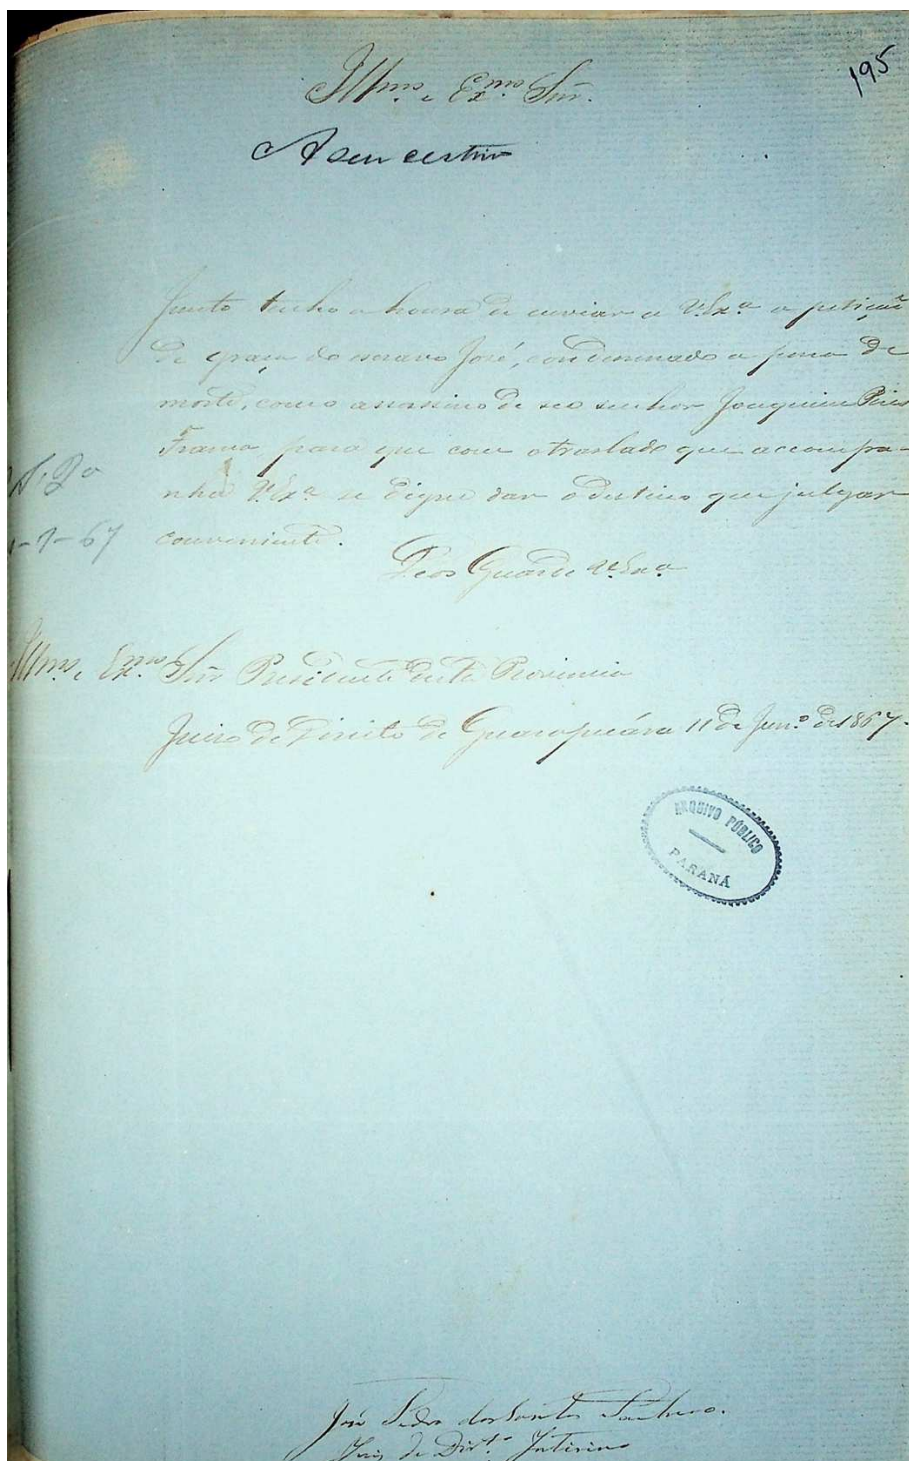 195
Illmo. e Exmo. Snr.
A seu destino
Junto tenho a honra de enviar a V.Exa. a petição
de graça do escravo José, condemnado a pena de
morte, como assassino de seo senhor Joaquim Pires
para que com o traslado que accompa-
nha V.Exa. se digne dar o destino que julgar
conveniente.
-67
Deos Guarde V.Exa.
Illmo. e Exmo. Snr Presidente desta Provincia
Juizo de Direito de Guarapuáva 11 de Junº de 1867.
ARQUIVO PÚBLICO
PARANÁ
José Pedro dos Santos Pacheco.
Juiz de Dirto. Interino